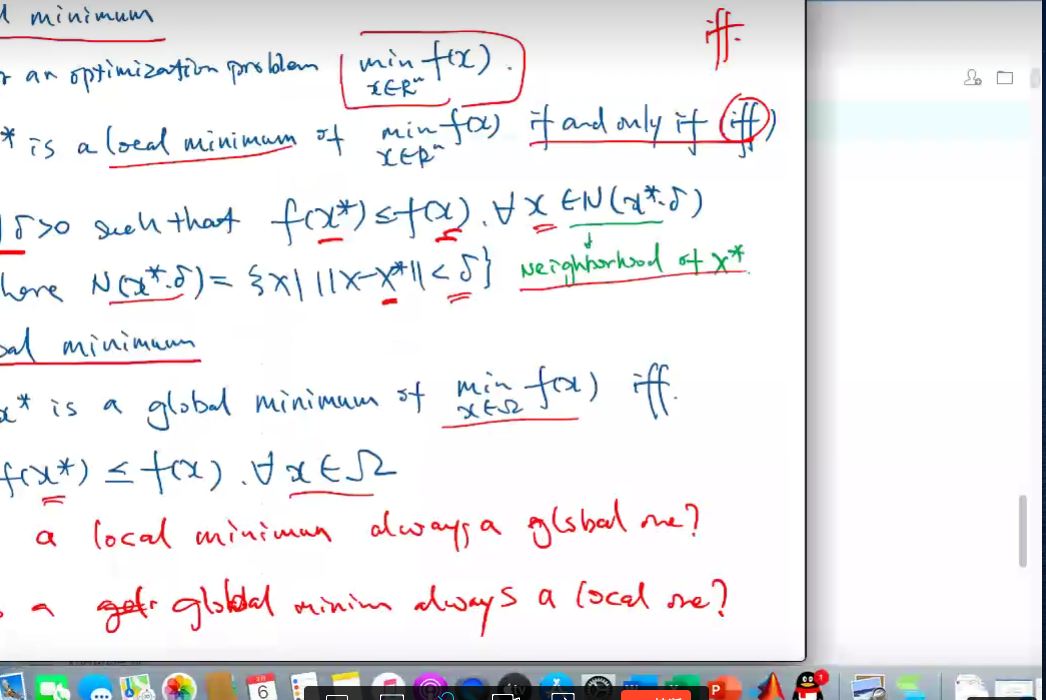 l minimum
iff.
r an optimization problem min f(x).
x∈Rⁿ
* is a local minimum of min f(x) if and only if (iff)
x∈Rⁿ
δ>0 such that f(x*)≤f(x). ∀ x ∈ N(x*.δ)
here N(x*.δ) = {x| ||x-x*|| < δ} neighborhood of x*
bal minimum
x* is a global minimum of min f(x) iff.
x∈Ω
f(x*) ≤ f(x). ∀ x ∈ Ω
a local minimum always a global one?
a global minim always a local one?
6
P
1